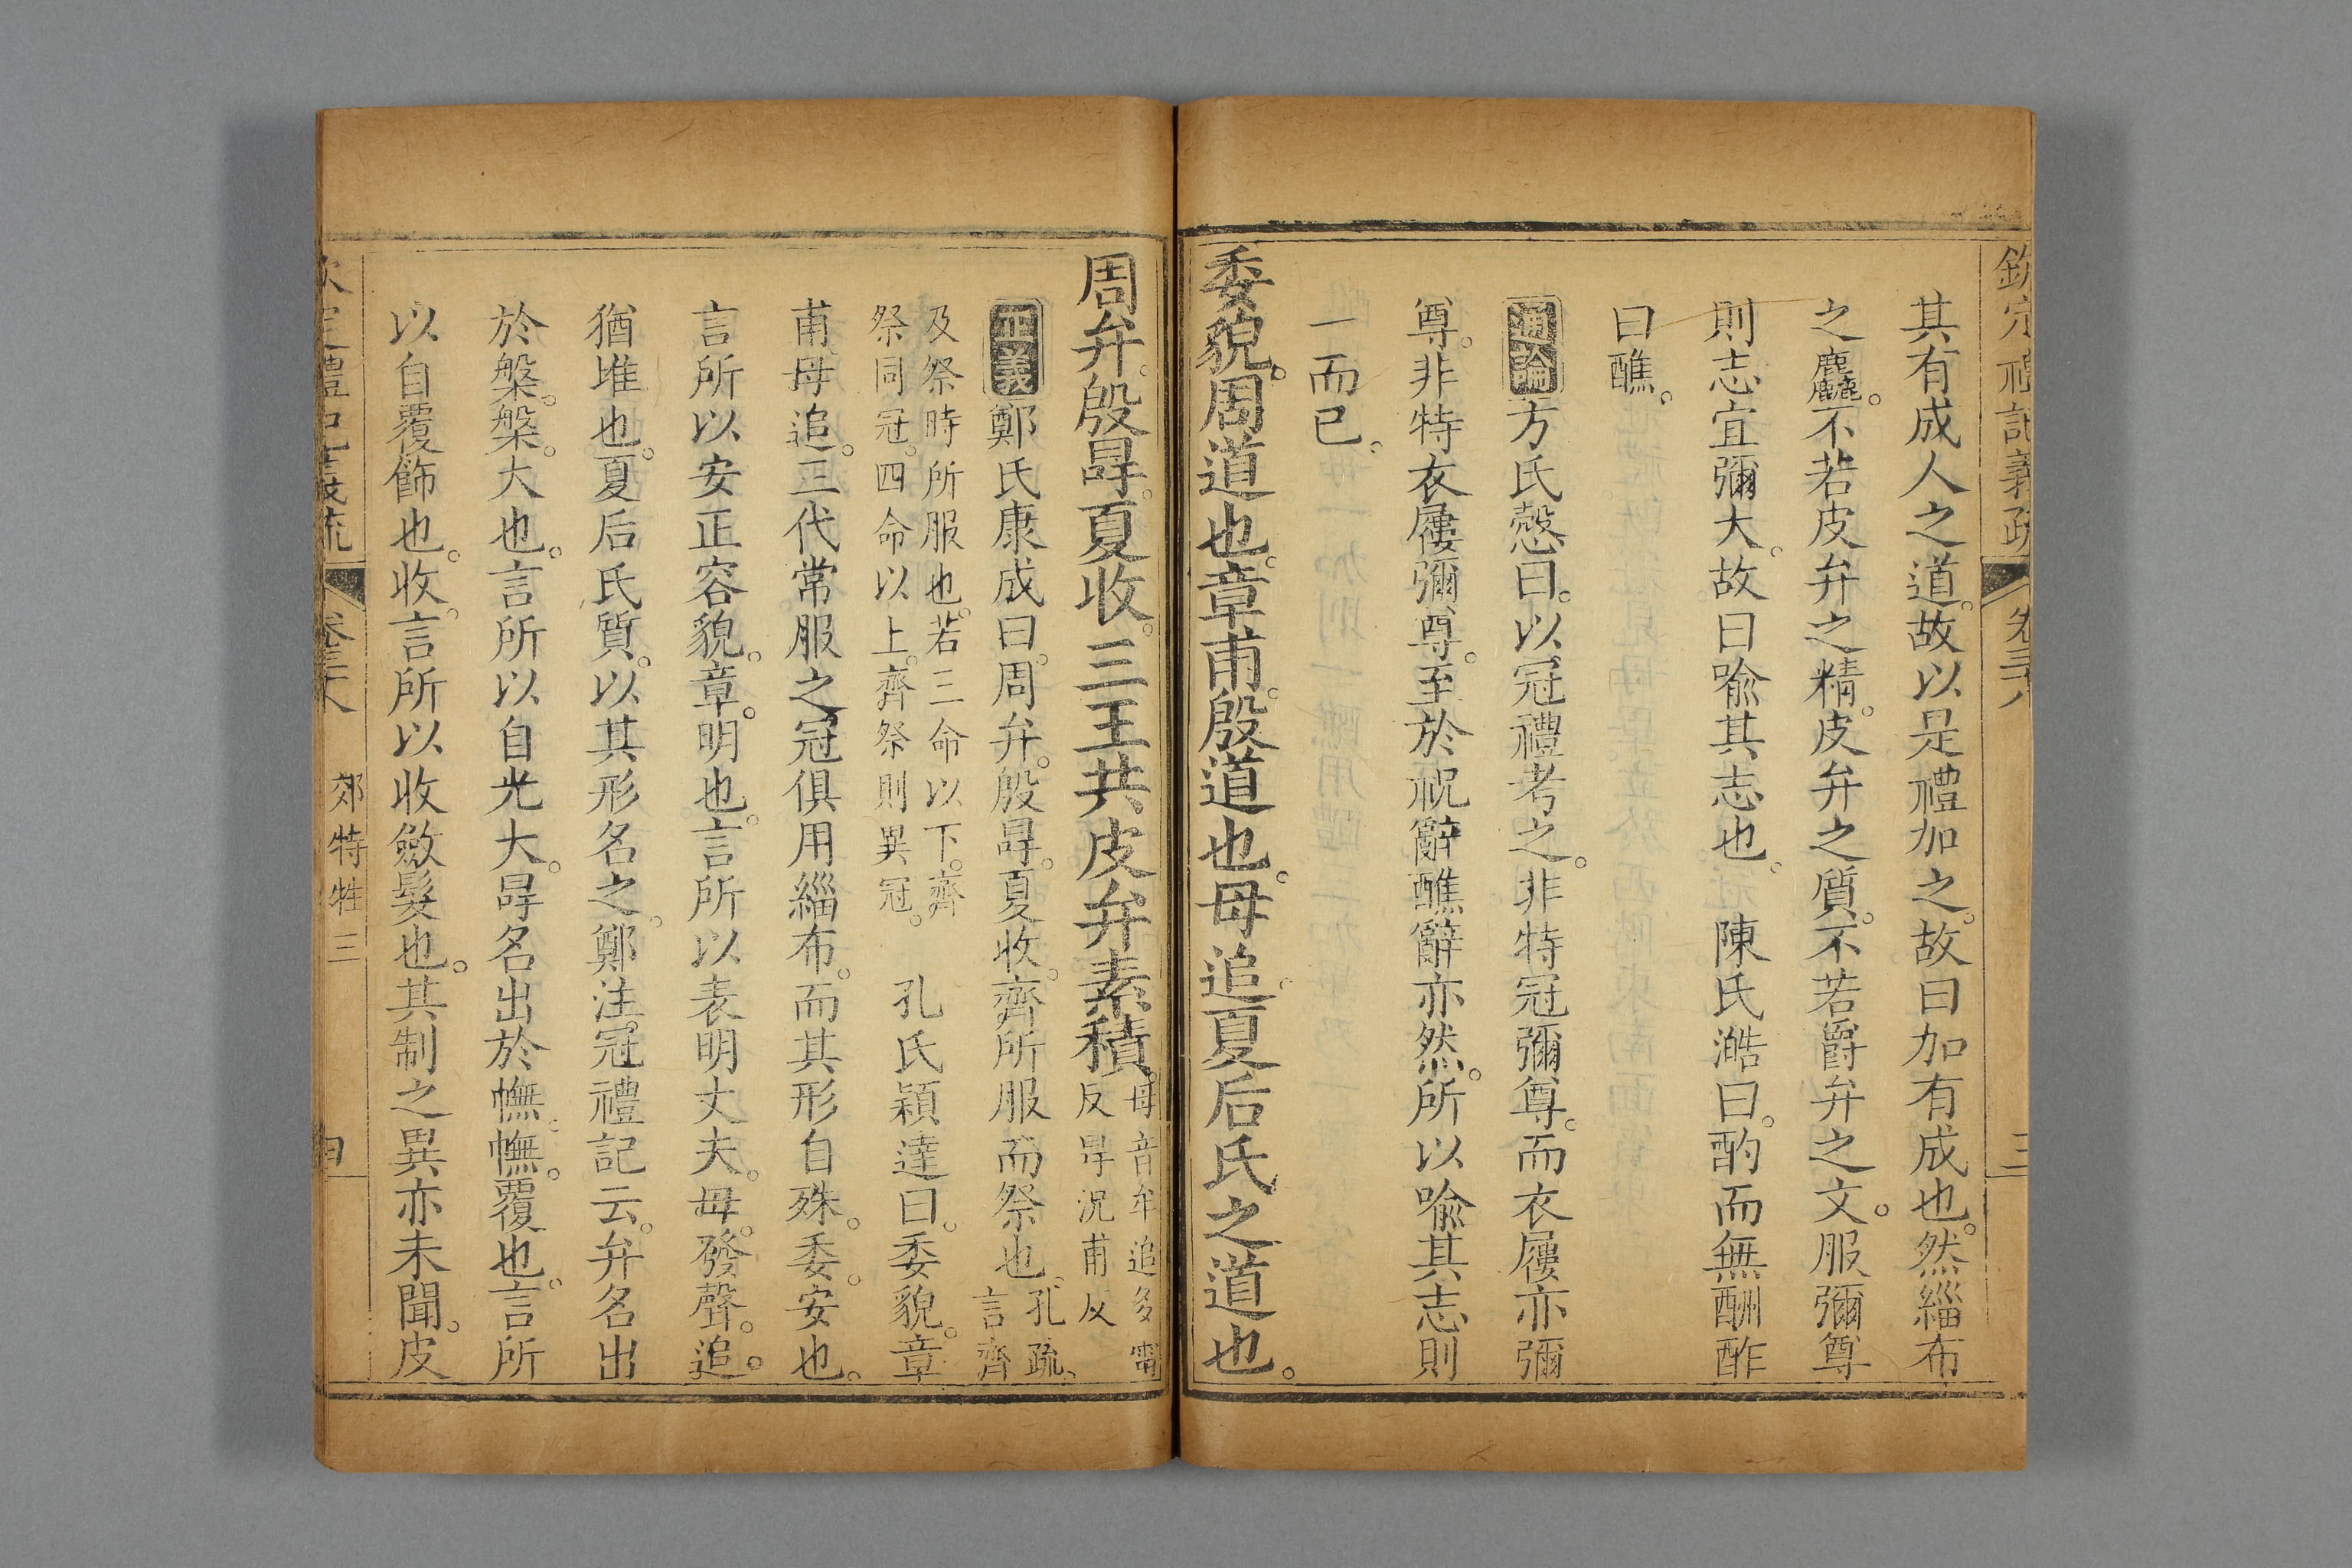 欽定禮記義疏 卷三十八 三
其有成人之道。故以是禮加之。故曰加有成也。然緇布
之麤。不若皮弁之精。皮弁之質。不若爵弁之文。服彌尊
則志宜彌大。故曰喩其志也。 陳氏澔曰。酌而無酬酢
曰醮。
通論方氏慤曰。以冠禮考之。非特冠彌尊。而衣屨亦彌
尊。非特衣屨彌尊。至於祝辭醮辭亦然。所以喩其志則
一而已。
委貌。周道也。章甫。殷道也。毋追。夏后氏之道也。
周弁。殷冔。夏收。三王共皮弁素積。毋音牟追多雷
反冔況甫反
正義鄭氏康成曰。周弁。殷冔。夏收。齊所服而祭也。孔疏。
言齊
及祭時所服也。若三命以下。齊
祭同冠。四命以上。齊祭則異冠。 孔氏穎達曰。委貌。章
甫。毋追。三代常服之冠。俱用緇布。而其形自殊。委。安也。
言所以安正容貌。章。明也。言所以表明丈夫。毋。發聲。追。
猶堆也。夏后氏質。以其形名之。鄭注冠禮記云。弁名出
於槃。槃。大也。言所以自光大。冔名出於幠。幠。覆也。言所
以自覆飾也。收。言所以收斂髮也。其制之異亦未聞。皮
禮記義疏 卷三十八 郊特牲三